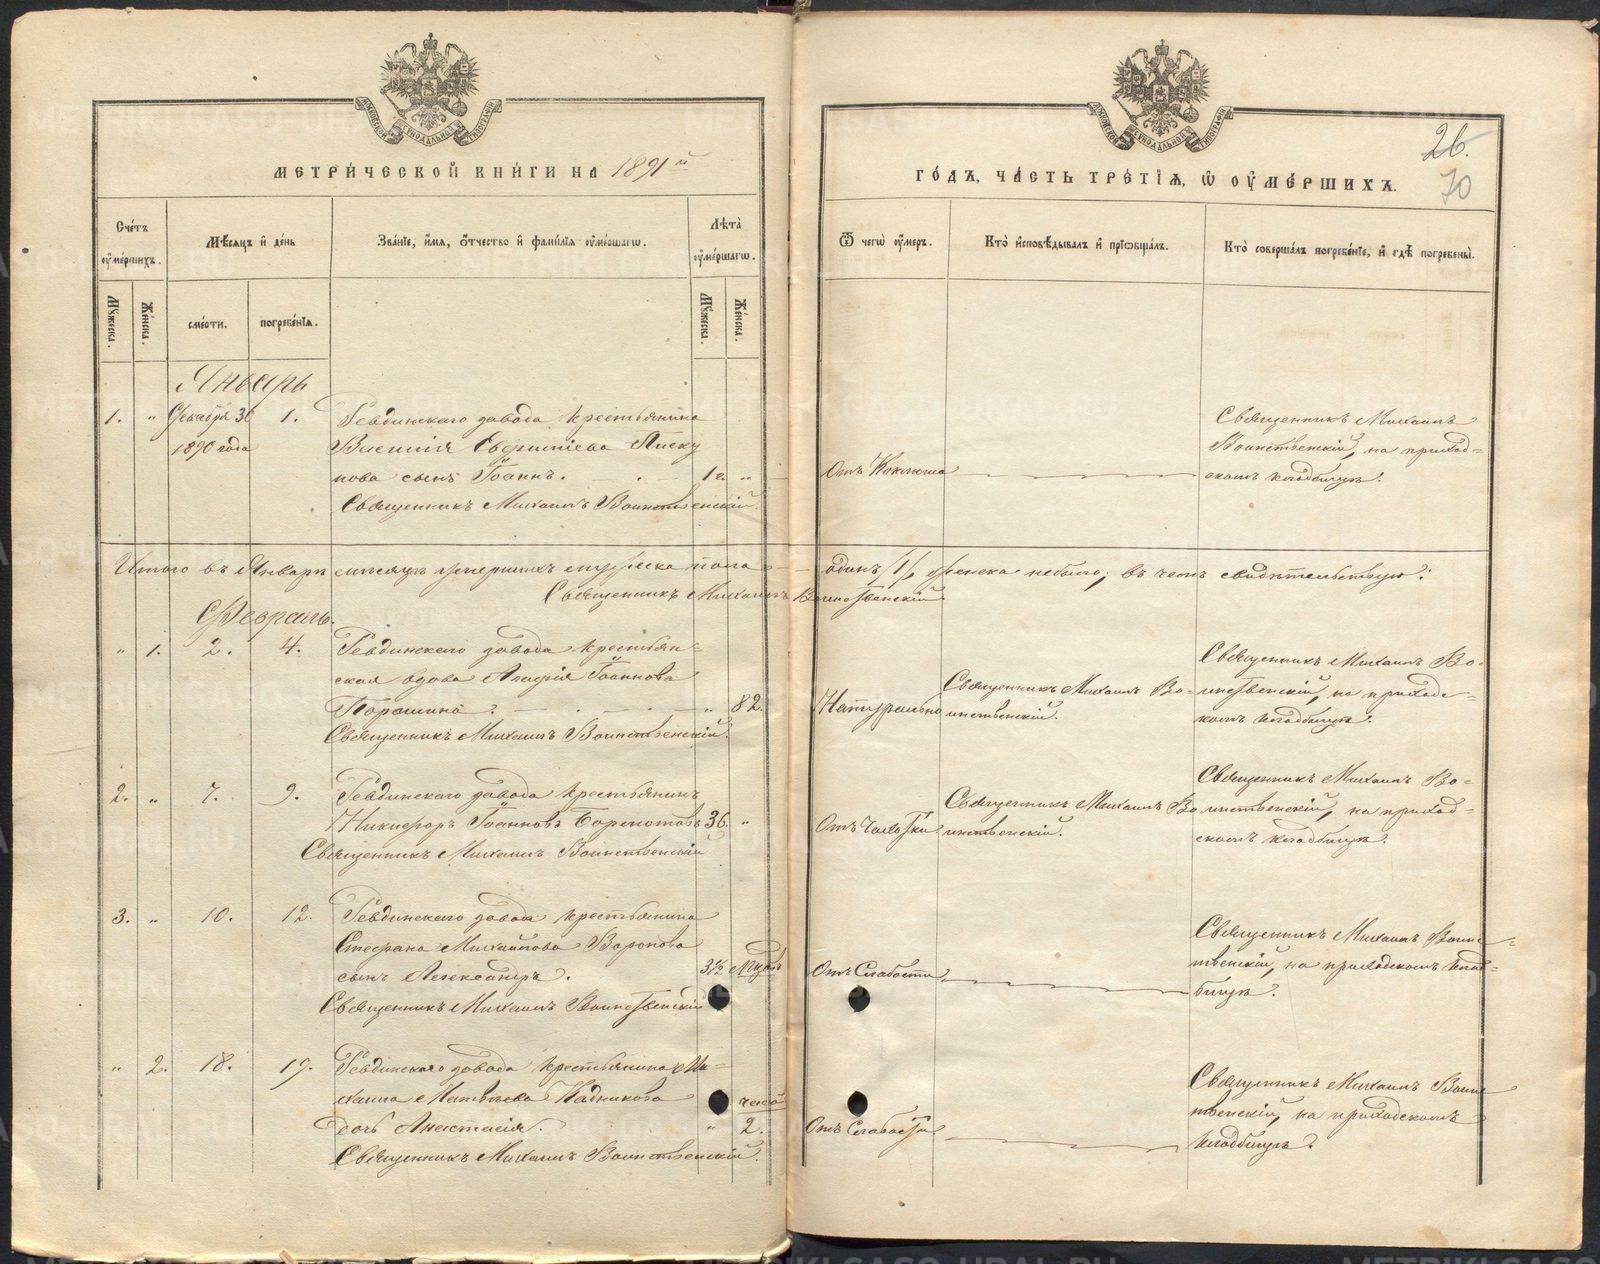 МЕТРИ́ЧЕСКОЙ КНИ́ГИ НА 1891й
ГО́ДЪ, ЧА́СТЬ ТРЕ́ТІѦ, Ѡ҆ ОУ҆МЕ́РШИХЪ.
26.
70
Сче́тъ оу҆ме́ршихъ.
Мѣ́сѧцъ и҆ де́нь
Зва́нїе, и҆́мѧ, ѻ҆́тчество и҆ фами́лїѧ оу҆ме́ршагѡ.
Лѣ́та̀ оу҆ме́ршагѡ.
Ѿ чегѡ̀ оу҆́меръ.
Кто̀ и҆сповѣ́дывалъ и҆ прїѡбща́лъ.
Кто̀ соверша́лъ погребе́нїе, и҆ гдѣ̀ погребены̀.
Мꙋ́жеска.
Же́нска.
сме́рти.
погребе́нїѧ.
Мꙋ́жеска.
Же́нска.
Январь
1. " Декабря 30 1. Ревдинскаго завода крестьянина
1890 года
нова сынъ Іоаннъ. 1 г. "
Священникъ Михаилъ Воинственскій.
Отъ Коклюша
Священникъ Михаилъ
Воинственскій, на приход=
скомъ кладбищѣ.
Итого въ Январѣ мѣсяцѣ умершихъ мужеска пола — одинъ /1/, женска не было, въ чемъ свидѣтельствую:
Священникъ Михаилъ Воинственскій
Февраль.
" 1. 2. 4. Ревдинскаго завода крестьян=
ская вдова Агафія Іоаннова
" 82.
Священникъ Михаилъ Воинственскій.
Натурально
Священникъ Михаилъ Во-
инственскій.
Священникъ Михаилъ Во-
инственскій, на приход-
скомъ кладбищѣ.
2. " 7. 9. Ревдинскаго завода крестьянинъ
Никифоръ Іоанновъ 36. "
Священникъ Михаилъ Воинственскій
Отъ Чахотки
Священникъ Михаилъ Во
инственскій.
Священникъ Михаилъ Во=
инственскій, на приход=
скомъ кладбищѣ.
3. " 10. 12. Ревдинскаго завода крестьянина
Стефана Михайлова Воронова
сынъ Александръ. 3½
Священникъ Михаилъ Воинственскій
Отъ Слабости
Священникъ Михаилъ Воинс=
твенскій, на приходскомъ клад=
бищѣ.
" 2. 18. 19. Ревдинскаго завода крестьянина Ми=
хаила Матвѣева Кадникова часа
дочь Анастасія. " 2.
Священникъ Михаилъ Воинственскій.
Отъ Слабости
Священникъ Михаилъ Воинс
твенскій, на приходскомъ
кладбищѣ.
METRIKI.GASO-URAL.RU